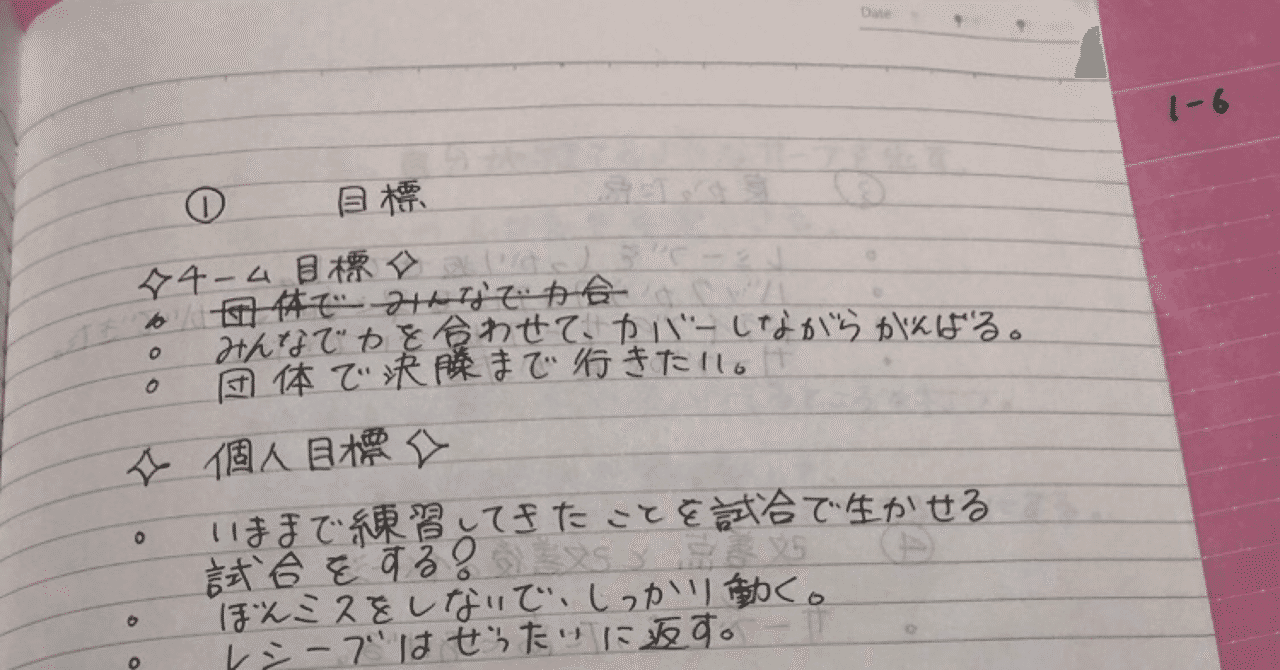 Date
1-6
① 目標
✧チーム目標✧
。団体で みんなで力合
。みんなで力を合わせて、カバーしながらがんばる。
。団体で決勝まで行きたい。
✧ 個人目標 ✧
。いままで練習してきたことを試合で生かせる
試合をする!
。ぼんミスをしないで、しっかり動く。
。レシーブはぜったいに返す。
③ 良かった点
。レシーブをしっかり
④ 改善点と改善後